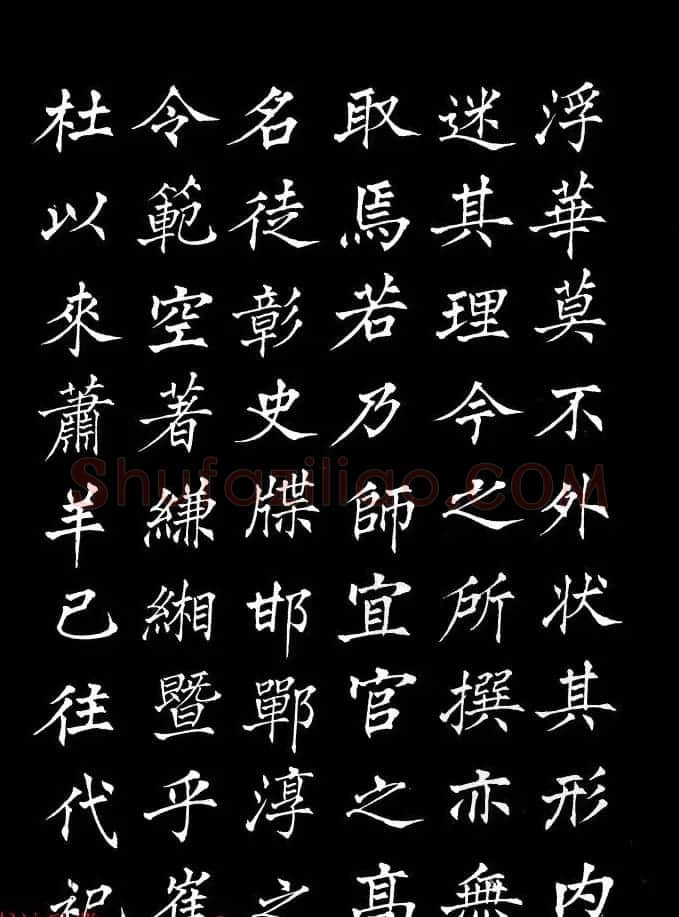 浮華莫不外状其形内
迷其理今之所撰亦無
取焉若乃師宜官之髙
名徒彰史牒邯鄲淳之
令範空著縑緗暨乎崔
杜以來蕭羊已往代祀
Shufaziliao.COM